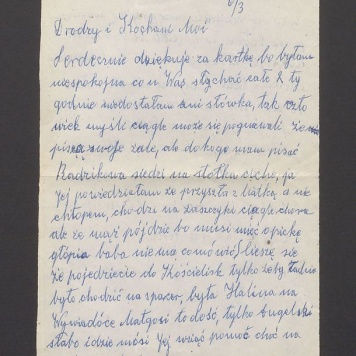 6/3
Drodzy i Kochani Moi
Serdecznie dziękuję za kartkę bo byłam
niespokojna co u Was słychać całe 2 ty
godnie niedostałam ani słówka, tak czło
wiek myśli ciągle może się pogniewali że
piszę swoje żale, ale do kogo mam pisać
siedzi na stołku cicho, ja
jej powiedziałam że przyszła z a nie
chłopem, chodzi na zaszczyki ciągle chora
ale że mąż pójdzie bo musi mieć opiekę
głupia baba niema co mówić się
że pojedziecie do Kościelisk tylko żeby ładnie
było chodzić na spacer, była Halina na
Wywiadówce Małgosi to dość, tylko Angielski
słabo idzie musi jej wziąć pomóc choć na